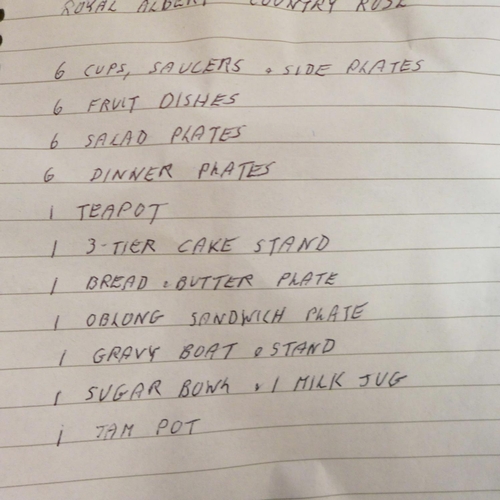 ROYAL ALBERT COUNTRY ROSE
6 CUPS, SAUCERS & SIDE PLATES
6 FRUIT DISHES
6 SALAD PLATES
6 DINNER PLATES
1 TEAPOT
1 3-TIER CAKE STAND
1 BREAD & BUTTER PLATE
1 OBLONG SANDWICH PLATE
1 GRAVY BOAT & STAND
1 SUGAR BOWL & 1 MILK JUG
1 JAM POT